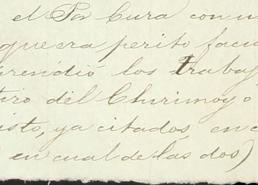 el Por Cura comu
quesra perito facu
prendio los trabaj
tiro del Chirimoyo
isto, ya citados en c
en cual de las dos)